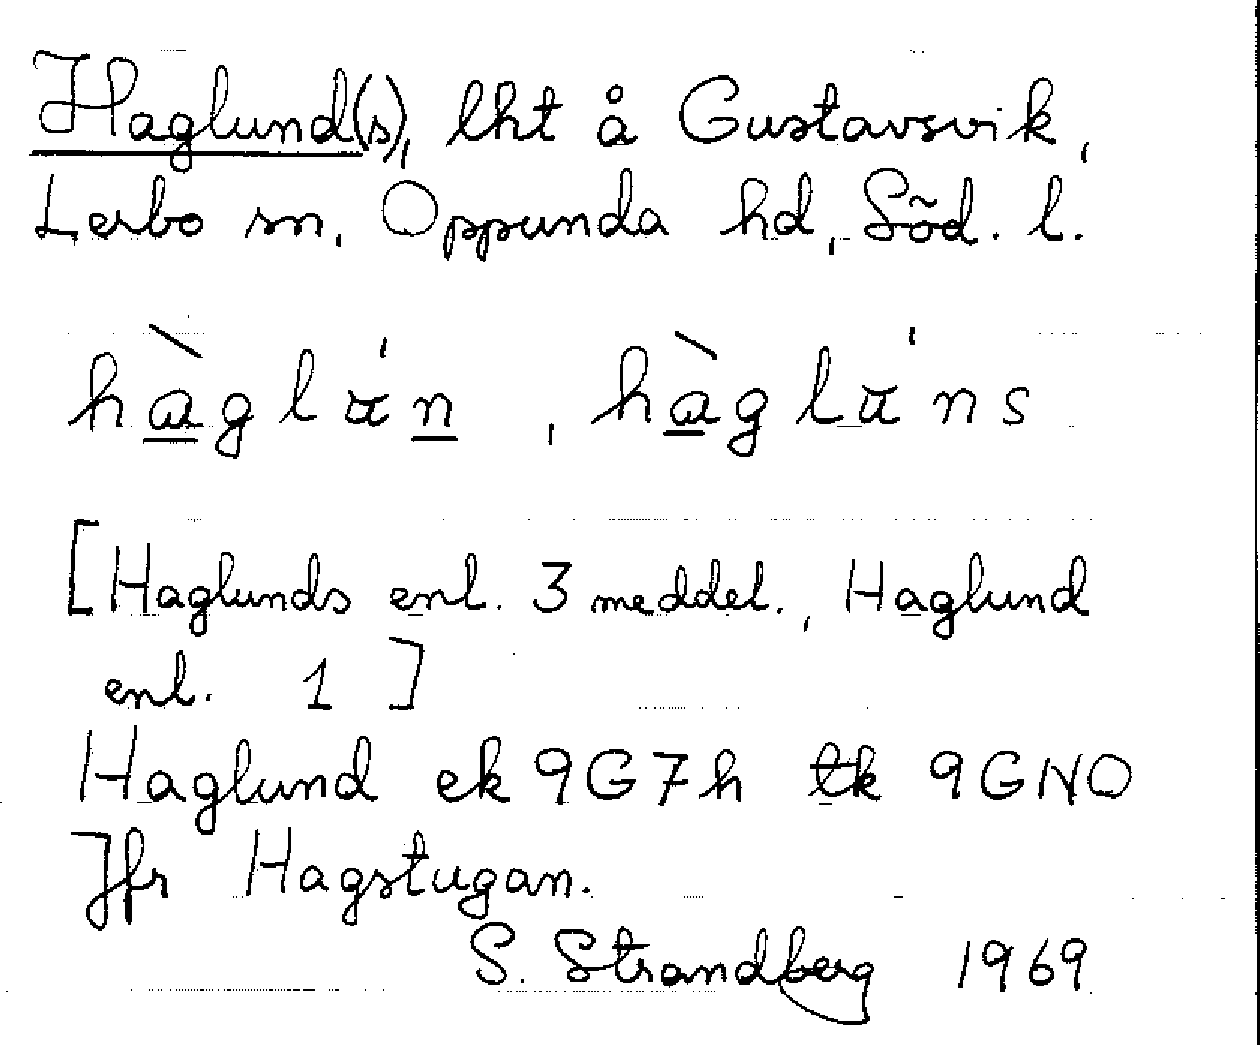 Haglund(s), lht å Gustavsvik,
Lerbo sn, Oppunda hd, Söd. l.
hàglα'n , hàglα'ns
[Haglunds enl. 3 meddel., Haglund
enl. 1 ]
Haglund ek 9G7h tk 9GNO
Jfr Hagstugan.
S. Strandberg 1969